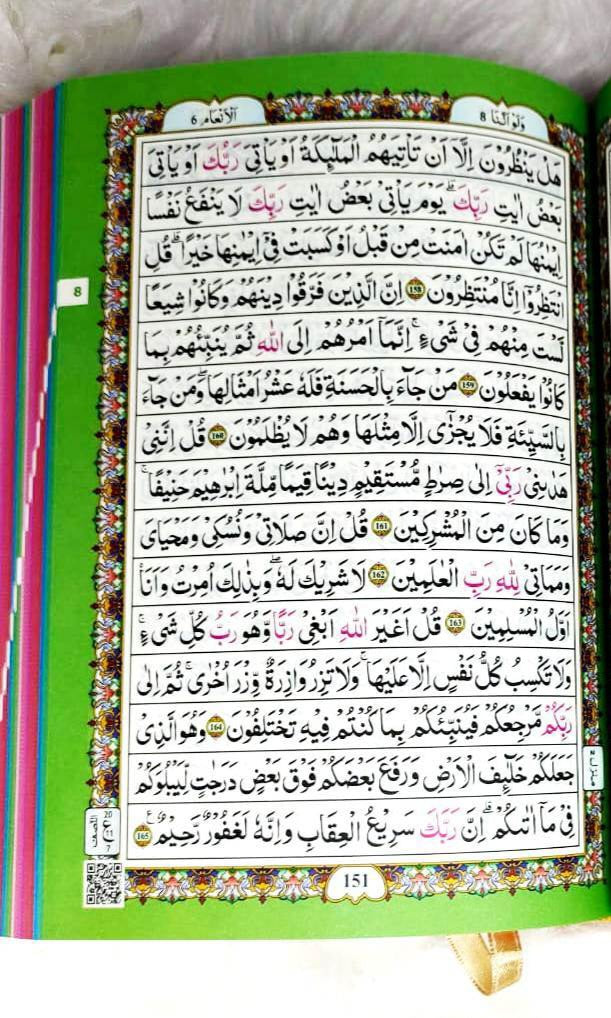 الانعام 6
ولو اننا 8
هَلْ يَنْظُرُوْنَ اِلَّاۤ اَنْ تَاْتِيَهُمُ الْمَلٰٓئِكَةُ اَوْ يَاْتِيَ رَبُّكَ اَوْ يَاْتِيَ
بَعْضُ اٰيٰتِ رَبِّكَ ؕ يَوْمَ يَاْتِيْ بَعْضُ اٰيٰتِ رَبِّكَ لَا يَنْفَعُ نَفْسًا
اِيْمٰنُهَا لَمْ تَكُنْ اٰمَنَتْ مِنْ قَبْلُ اَوْ كَسَبَتْ فِيْۤ اِيْمٰنِهَا خَيْرًا ؕ قُلِ
انْتَظِرُوْۤا اِنَّا مُنْتَظِرُوْنَ 158 اِنَّ الَّذِيْنَ فَرَّقُوْا دِيْنَهُمْ وَكَانُوْا شِيَعًا
لَّسْتَ مِنْهُمْ فِيْ شَيْءٍ ؕ اِنَّمَاۤ اَمْرُهُمْ اِلَى اللّٰهِ ثُمَّ يُنَبِّئُهُمْ بِمَا
كَانُوْا يَفْعَلُوْنَ 159 مَنْ جَآءَ بِالْحَسَنَةِ فَلَهٗ عَشْرُ اَمْثَالِهَا ۚ وَمَنْ جَآءَ
بِالسَّيِّئَةِ فَلَا يُجْزٰۤى اِلَّا مِثْلَهَا وَهُمْ لَا يُظْلَمُوْنَ 160 قُلْ اِنَّنِيْ
هَدٰىنِيْ رَبِّيْۤ اِلٰى صِرٰطٍ مُّسْتَقِيْمٍ دِيْنًا قِيَمًا مِّلَّةَ اِبْرٰهِيْمَ حَنِيْفًا ۚ
وَمَا كَانَ مِنَ الْمُشْرِكِيْنَ 161 قُلْ اِنَّ صَلَاتِيْ وَنُسُكِيْ وَمَحْيَايَ
وَمَمَاتِيْ لِلّٰهِ رَبِّ الْعٰلَمِيْنَ 162 لَا شَرِيْكَ لَهٗ ۚ وَبِذٰلِكَ اُمِرْتُ وَاَنَا۠
اَوَّلُ الْمُسْلِمِيْنَ 163 قُلْ اَغَيْرَ اللّٰهِ اَبْغِيْ رَبًّا وَّهُوَ رَبُّ كُلِّ شَيْءٍ ؕ
وَلَا تَكْسِبُ كُلُّ نَفْسٍ اِلَّا عَلَيْهَا ۚ وَلَا تَزِرُ وَازِرَةٌ وِّزْرَ اُخْرٰى ۚ ثُمَّ اِلٰى
رَبِّكُمْ مَّرْجِعُكُمْ فَيُنَبِّئُكُمْ بِمَا كُنْتُمْ فِيْهِ تَخْتَلِفُوْنَ 164 وَهُوَ الَّذِيْ
جَعَلَكُمْ خَلٰٓئِفَ الْاَرْضِ وَرَفَعَ بَعْضَكُمْ فَوْقَ بَعْضٍ دَرَجٰتٍ لِّيَبْلُوَكُمْ
فِيْ مَاۤ اٰتٰىكُمْ ؕ اِنَّ رَبَّكَ سَرِيْعُ الْعِقَابِ وَاِنَّهٗ لَغَفُوْرٌ رَّحِيْمٌ 165
8
منزل ٢
20
ع
11
7
النصف
151